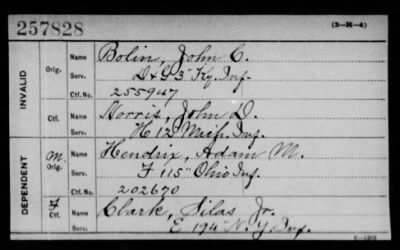 257828
(3-H-4)
INVALID
Orig. Name Bolin, John C.
Serv. D & G 3" Ky. Inf.
Ctf. No. 255947
Ctf. Name Norris, John D.
Serv. H 12 Mich. Inf.
DEPENDENT
M. Orig. Name Hendrix, Adam M.
Serv. F 115" Ohio Inf.
Ctf. No. 202670
Ctf. Name Clark, Silas Jr.
Serv. E 194" N.Y. Inf.